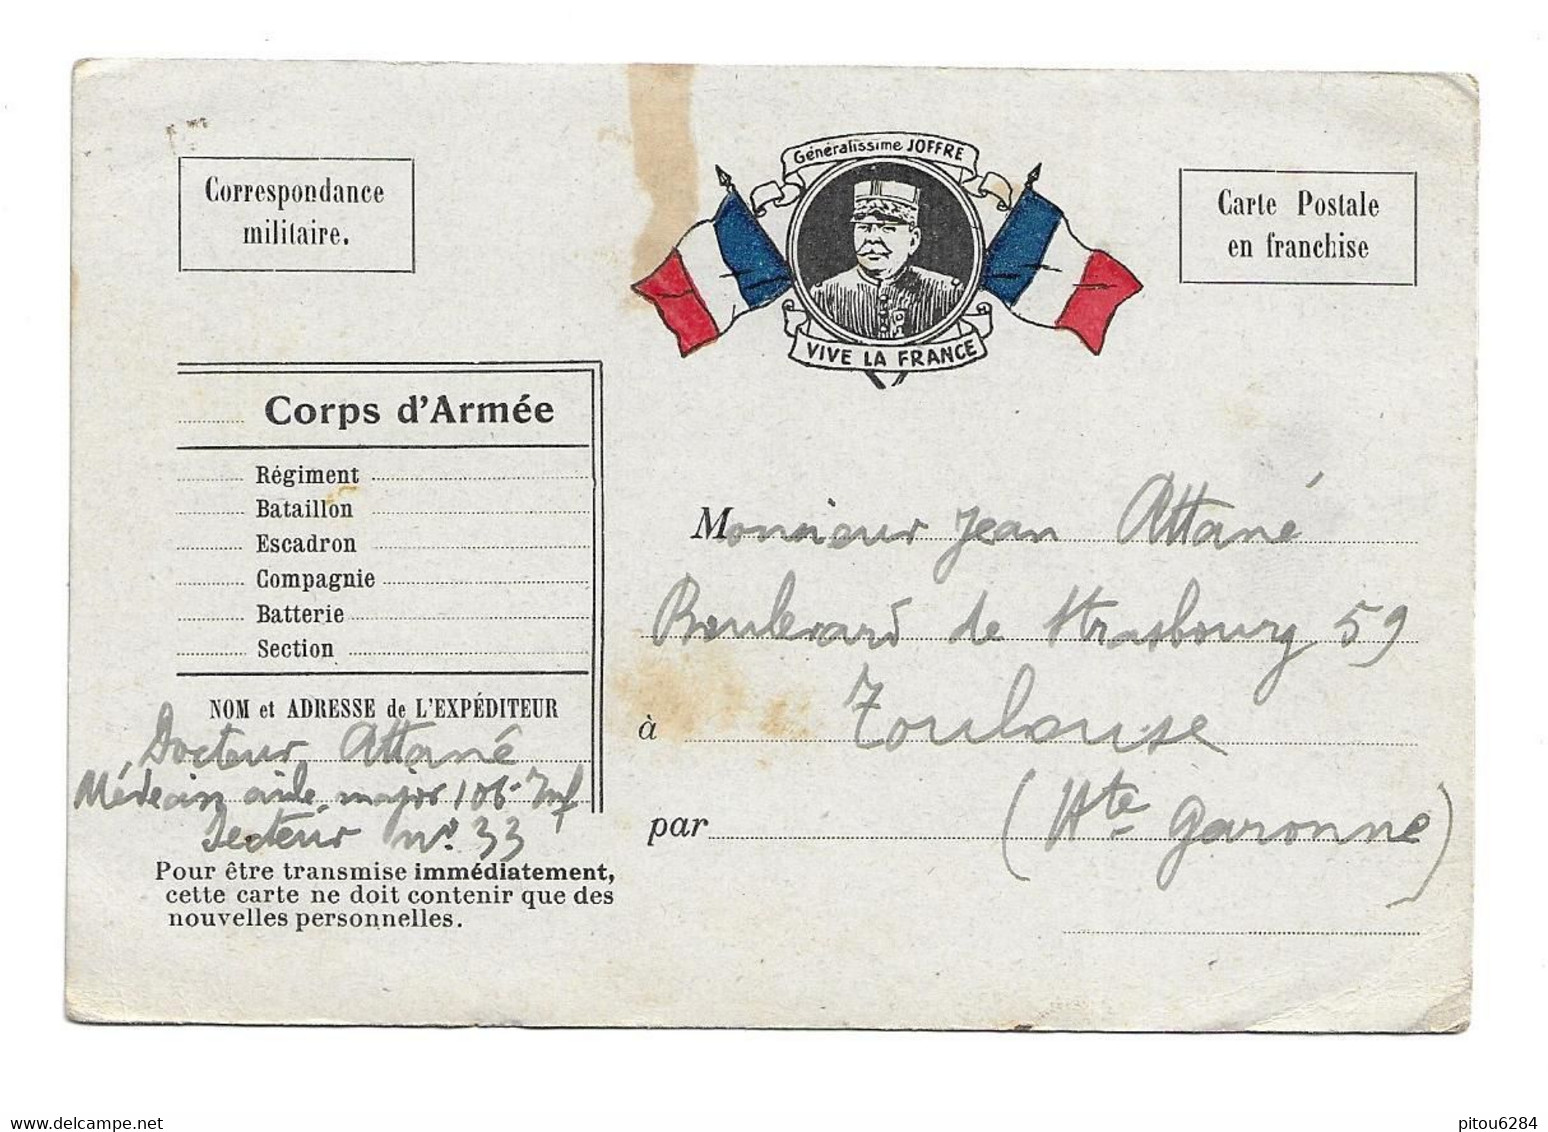 Correspondance
militaire.
Généralissime JOFFRE
VIVE LA FRANCE
Carte Postale
en franchise
Corps d'Armée
Régiment
Bataillon
Escadron
Compagnie
Batterie
Section
NOM et ADRESSE de L'EXPÉDITEUR
Docteur Attané
Médecin aide-major 106e Inf
Secteur no 33
Pour être transmise immédiatement,
cette carte ne doit contenir que des
nouvelles personnelles.
Monsieur Jean Attané
Boulevard de Strasbourg 59
à Toulouse
par (Hte Garonne)
delcampe.net
pitou6284